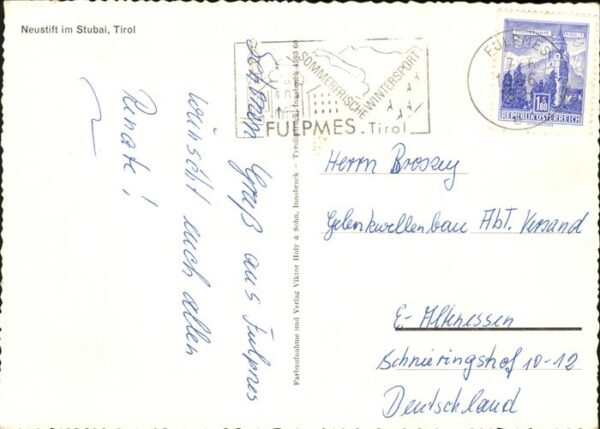 Neustift im Stubai, Tirol
Schönen Gruß aus Fulpmes
wünscht euch allen
Renate!
Farbaufnahme und Verlag Viktor Hotz & Sohn, Innsbruck – Tyroliadruck, Innsbruck
SOMMERFRISCHE-WINTERSPORT
FULPMES. Tirol
FULPMES
1.80
REPUBLIK ÖSTERREICH
Herrn Brossey
Gelenkwellenbau Abt. Versand
E- Altenessen
Schnieringshof 10-12
Deutschland